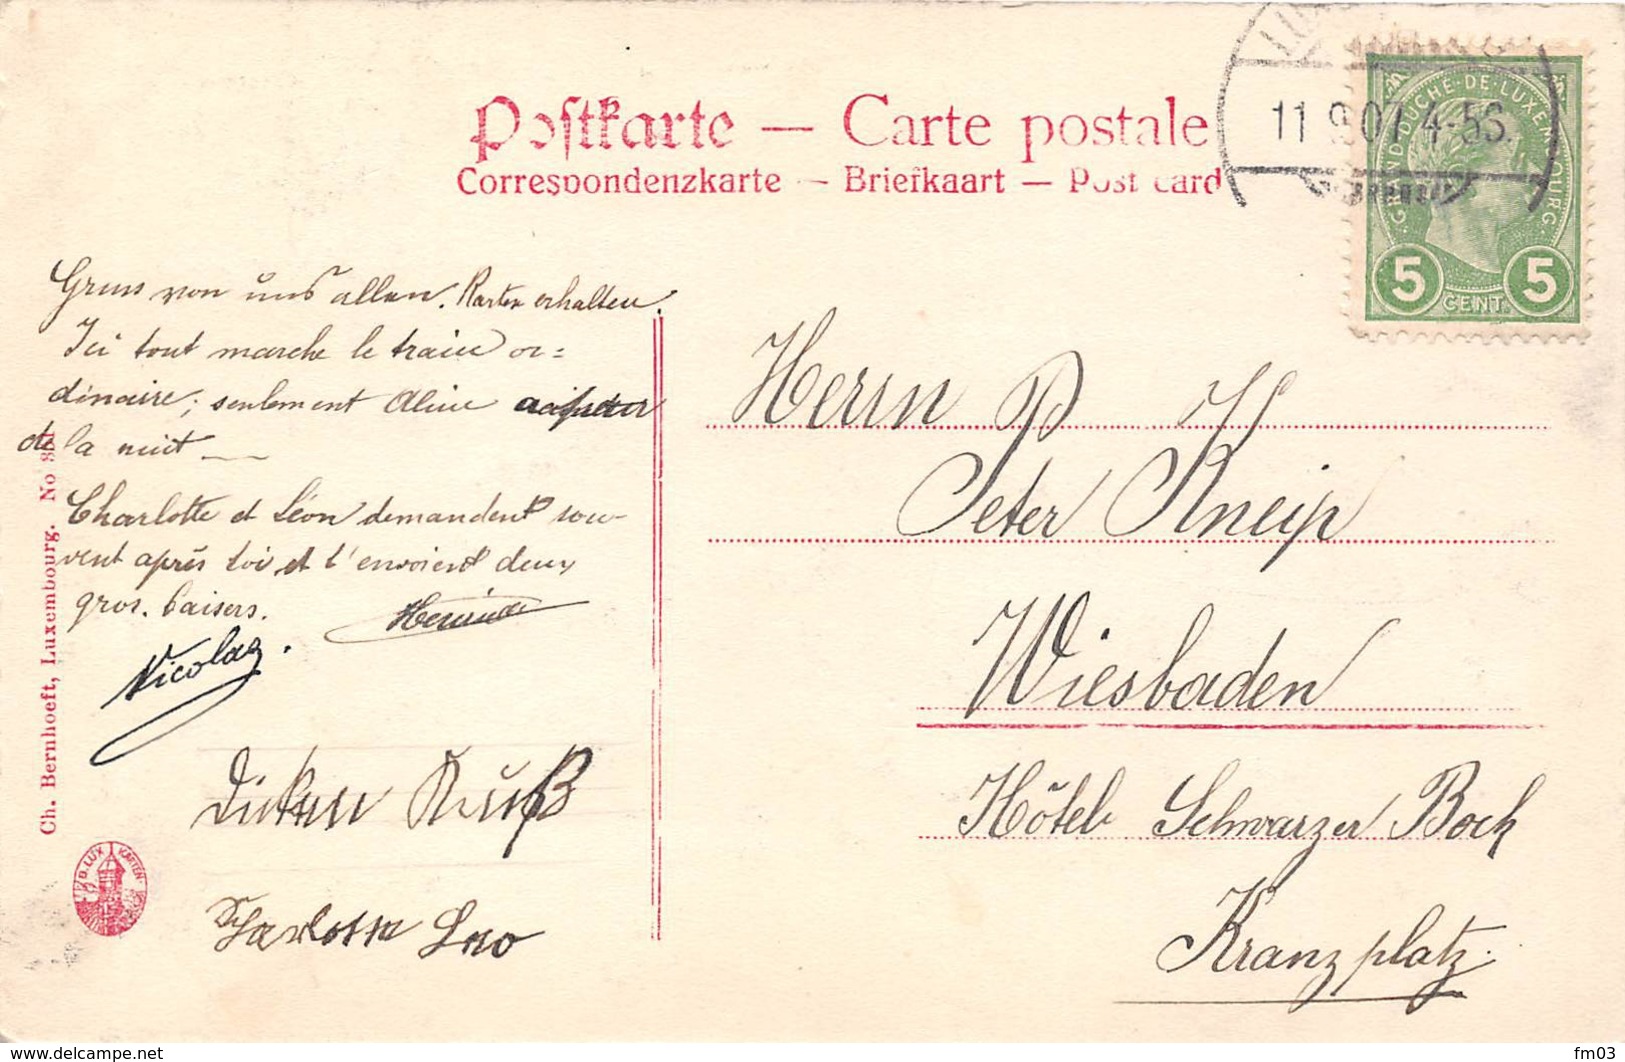 Postkarte — Carte postale
Correspondenzkarte — Briefkaart — Post card
11 9 07 4-5S.
GRAND-DUCHÉ-DE-LUXEMBOURG
5 CENT. 5
Gruss von uns allen. Karten erhalten.
Ici tout marche le train or=
dinaire; seulement Aline
de la nuit —
Charlotte et Léon demandent sou-
vent après toi et t'envoient deux
gros. baisers.
Nicolas.
Kuß
Leo
Herrn P
Peter Kneip
Wiesbaden
Hôtel Schwarzer Bock
Kranzplatz.
Ch. Bernhoeft, Luxembourg. No
B. LUX KARTEN
www.delcampe.net
fm03